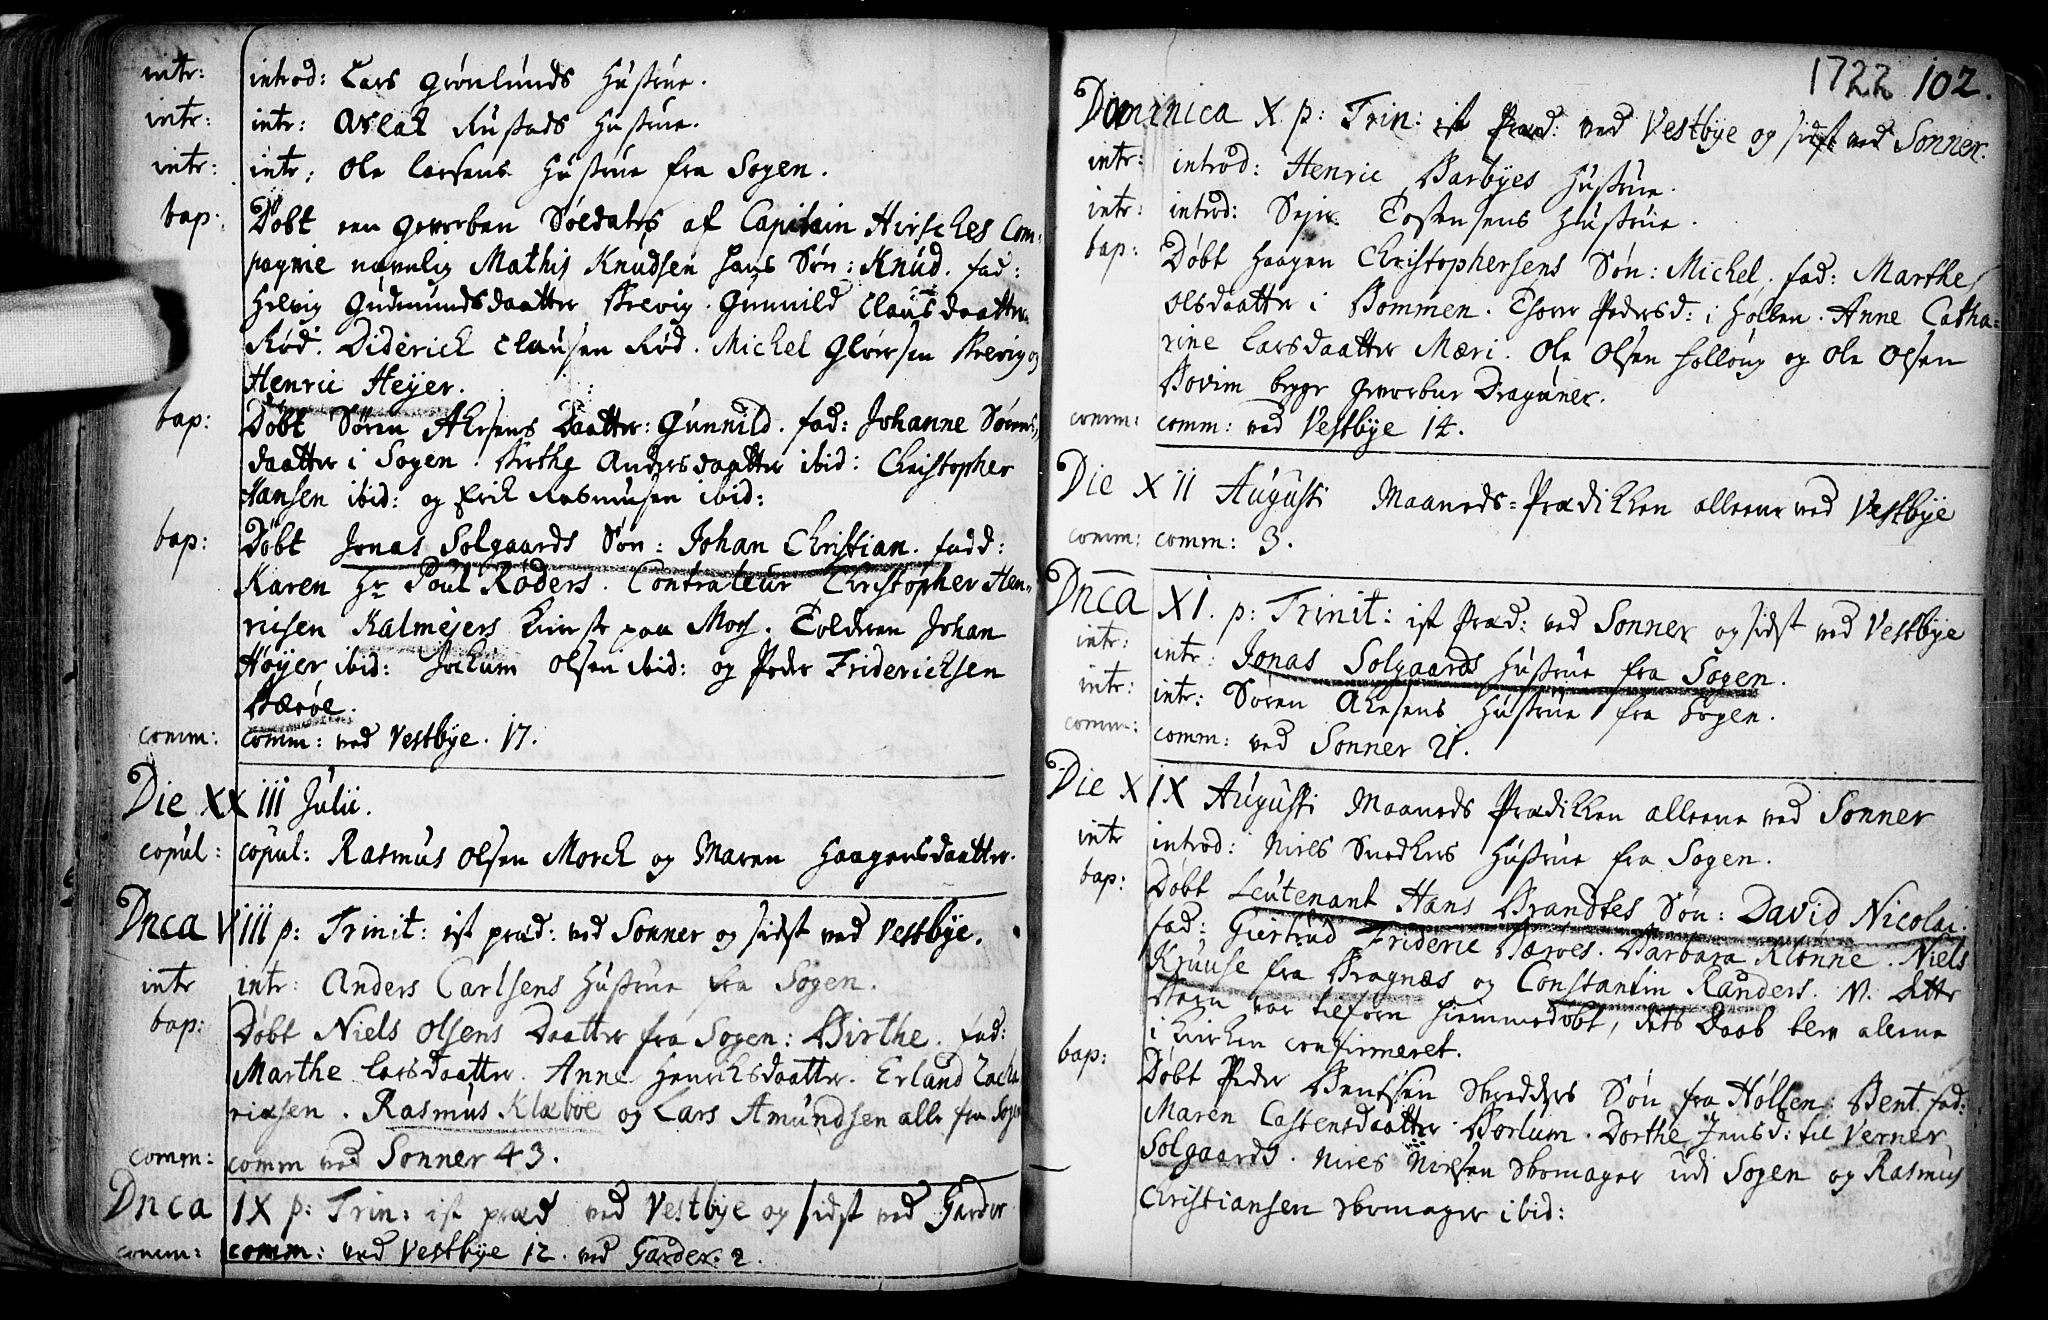 intr: introd: Lars Grønlunds Hustrue.
intr: intr: Aslak Rustads Hustrue.
intr: intr: Ole Larsens Hustrue fra Sogen.
bap: Døbt een gevorben Soldats af Capitain Hirsches Com-
pagnie nævnlig Mathis Knudsen hans Søn: Knud. fad:
Helvig Gudmundsdaatter Krevig. Gunnild Clausdaatter
Rød. Diderich Clausen Rød. Michel Gloersen Krevig og
Henric Heyer.
bap: Døbt Søren Akesens Daatter: Gunnild. fad: Johanne Sørens-
daatter i Sogen. Birthe Andersdaatter ibid: Christopher
Hansen ibid: og Erik Rasmusen ibid:
bap: Døbt Jonas Solgaards Søn: Johan Christian. fadd:
Karen Hr Poul Røders. Contrateur Christopher Hen-
richsen Kalmejers paa Moss. Tolderen Johan
Høyer ibid: Jochum Olsen ibid: og Peder Friderichsen
Bærøe.
comm: comm: ved Vestbye. 17.
Die XXIII Julii.
copul: copul: Rasmus Olsen Morck og Maren Haagensdaatter.
Dnca VIII p: Trinit: ist præd: ved Sonner og sidst ved Vestbye.
intr intr: Anders Carlsens Hustrue fra Sogen.
bap: Døbt Niels Olsens Daatter fra Sogen: Birthe. fad:
Marthe Larsdaatter. Anne Henrichsdaatter. Erland Zacha
riæsen. Rasmus Klæboe og Lars Amundsen alle fra Sogen
comm: comm ved Sonner 43.
Dnca IX p: Trin: ist præd ved Vestbye og sidst ved Garder
comm: comm: ved Vestbye 12. ved Garder. 2.
1722 102.
Dominica X p: Trin: ist Præd: ved Vestbye og sidst ved Sonner.
intr: introd: Henric Barbyes Hustrue.
intr: introd: Sejr Tostensens Hustrue.
bap: Døbt Haagen Christophersens Søn: Michel. fad: Marthe
Olsdaatter i Bommen. Thore Pedersd: i Hollen. Anne Catha-
rine Larsdaatter Mæri. Ole Olsen Hollong og Ole Olsen
Bovim begge gevorbne Dragouner.
comm: comm: ved Vestbye 14.
Die XII Augusti Maaneds-Prædikken alleene ved Vestbye
comm: comm: 3.
Dnca XI. p: Trinit: ist Præd: ved Sonner og sidst ved Vestbye
intr: intr: Jonas Solgaards Hustrue fra Sogen.
intr: intr: Søren Akesens Hustrue fra Sogen.
comm: comm: ved Sonner 21.
Die XIX Augusti Maaneds Prædikken alleene ved Sonner
intr introd: Niels Snedkers Hustrue fra Sogen.
bap: Døbt Leutenant Hans Brandtes Søn: David Nicolai.
fad: Giertrud Frideric Bærøes. Barbara Klonne. Niels
Kruuse fra Bragnæs og Constantin Randers. N. dette
Barn var tilforn hiemmedøbt, dets Daab blev aleene
i Kirken confirmeret.
bap: Døbt Peder Bentsen Skredders Søn fra Høllen: Bent. fad:
Maren Castensdaatter Borlum. Dorthe Jensd: til Verner
Solgaards. Niels Nielsen Skomager udi Sogen og Rasmus
Christiansen Skomager ibid: